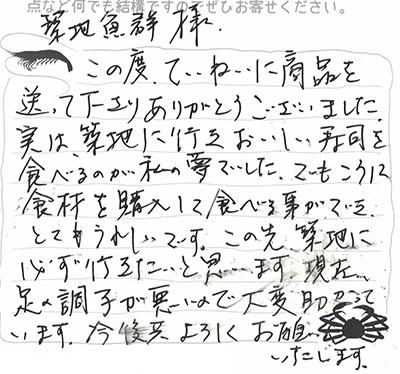 点など何でも結構ですのでぜひお寄せください。
築地魚群 様.
この度、ていねいに商品を
送って下さりありがとうございました。
実は、築地に行きおいしい寿司を
食べるのが私の夢でした。でもこうして
食材を購入して食べる事ができ、
とてもうれしいです。この先、築地に
必ず行きたいと思います。現在、
足の調子が悪いので大変助かって
います。今後共よろしくお願い
いたします。